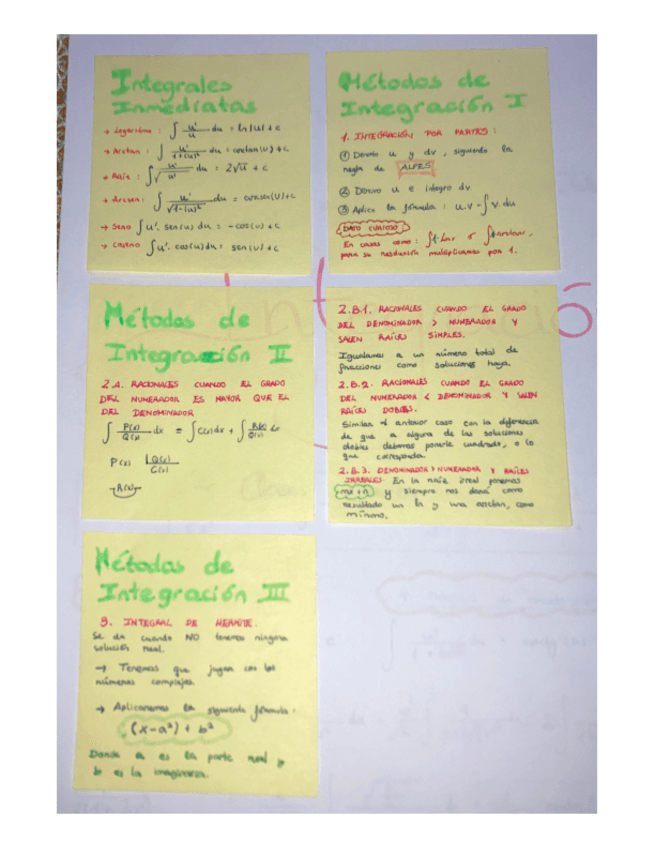 Integrales
Inmediatas
→ Logaritmo : ∫ u'/u du = ln|u| + c
→ Arctan : ∫ u'/1+(u)² du = arctan(u)+c
→ Raíz : ∫ √ u' du = 2√u + c
→ Arcsen : ∫ u'/√1-(u)² du = arcsen(u)+c
→ Seno ∫ u'. sen(u) du = - cos(u) + c
→ Coseno ∫ u'. cos(u) du = sen(u) + c
Métodos de
Integración I
1. INTEGRACIÓN POR PARTES :
① u y dv, siguiendo la
regla de ALPES
② Derivo u e integro dv
③ Aplico la fórmula : u.v - ∫ v. du
DATO CURIOSO :
En casos como : ∫1·Lnx o ∫
para su resolución multiplicamos por 1.
Métodos de
Integración II
2.A. RACIONALES CUANDO EL GRADO
DEL NUMERADOR ES MAYOR QUE EL
DEL DENOMINADOR
∫ P(x)/Q(x) dx = ∫ C(x) dx + ∫ R(x)/Q(x) dx
P(x) | Q(x)
C(x)
R(x)
2.B.1. RACIONALES CUANDO EL GRADO
DEL DENOMINADOR > NUMERADOR Y
SALEN RAÍCES SIMPLES.
Igualamos a un número total de
fracciones como soluciones haya.
2.B.2. RACIONALES CUANDO EL GRADO
DEL NUMERADOR < DENOMINADOR Y SALEN
RAÍCES DOBLES.
Similar al anterior caso con la diferencia
de que a alguna de las soluciones
dobles debemos ponerle cuadrado, o lo
que corresponda.
2.B.3. DENOMINADOR > NUMERADOR Y RAÍCES
IRREALES. En la raíz irreal ponemos
mx + n y siempre nos dará como
resultado un ln y una arctan, como
mínimo.
Métodos de
Integración III
3. INTEGRAL DE HERMITE.
Se da cuando NO tenemos ninguna
solución real.
→ Tenemos que jugar con los
números complejos.
→ Aplicaremos la siguiente fórmula :
(x-a²) + b²
Donde a es la parte real y
b es la imaginaria.